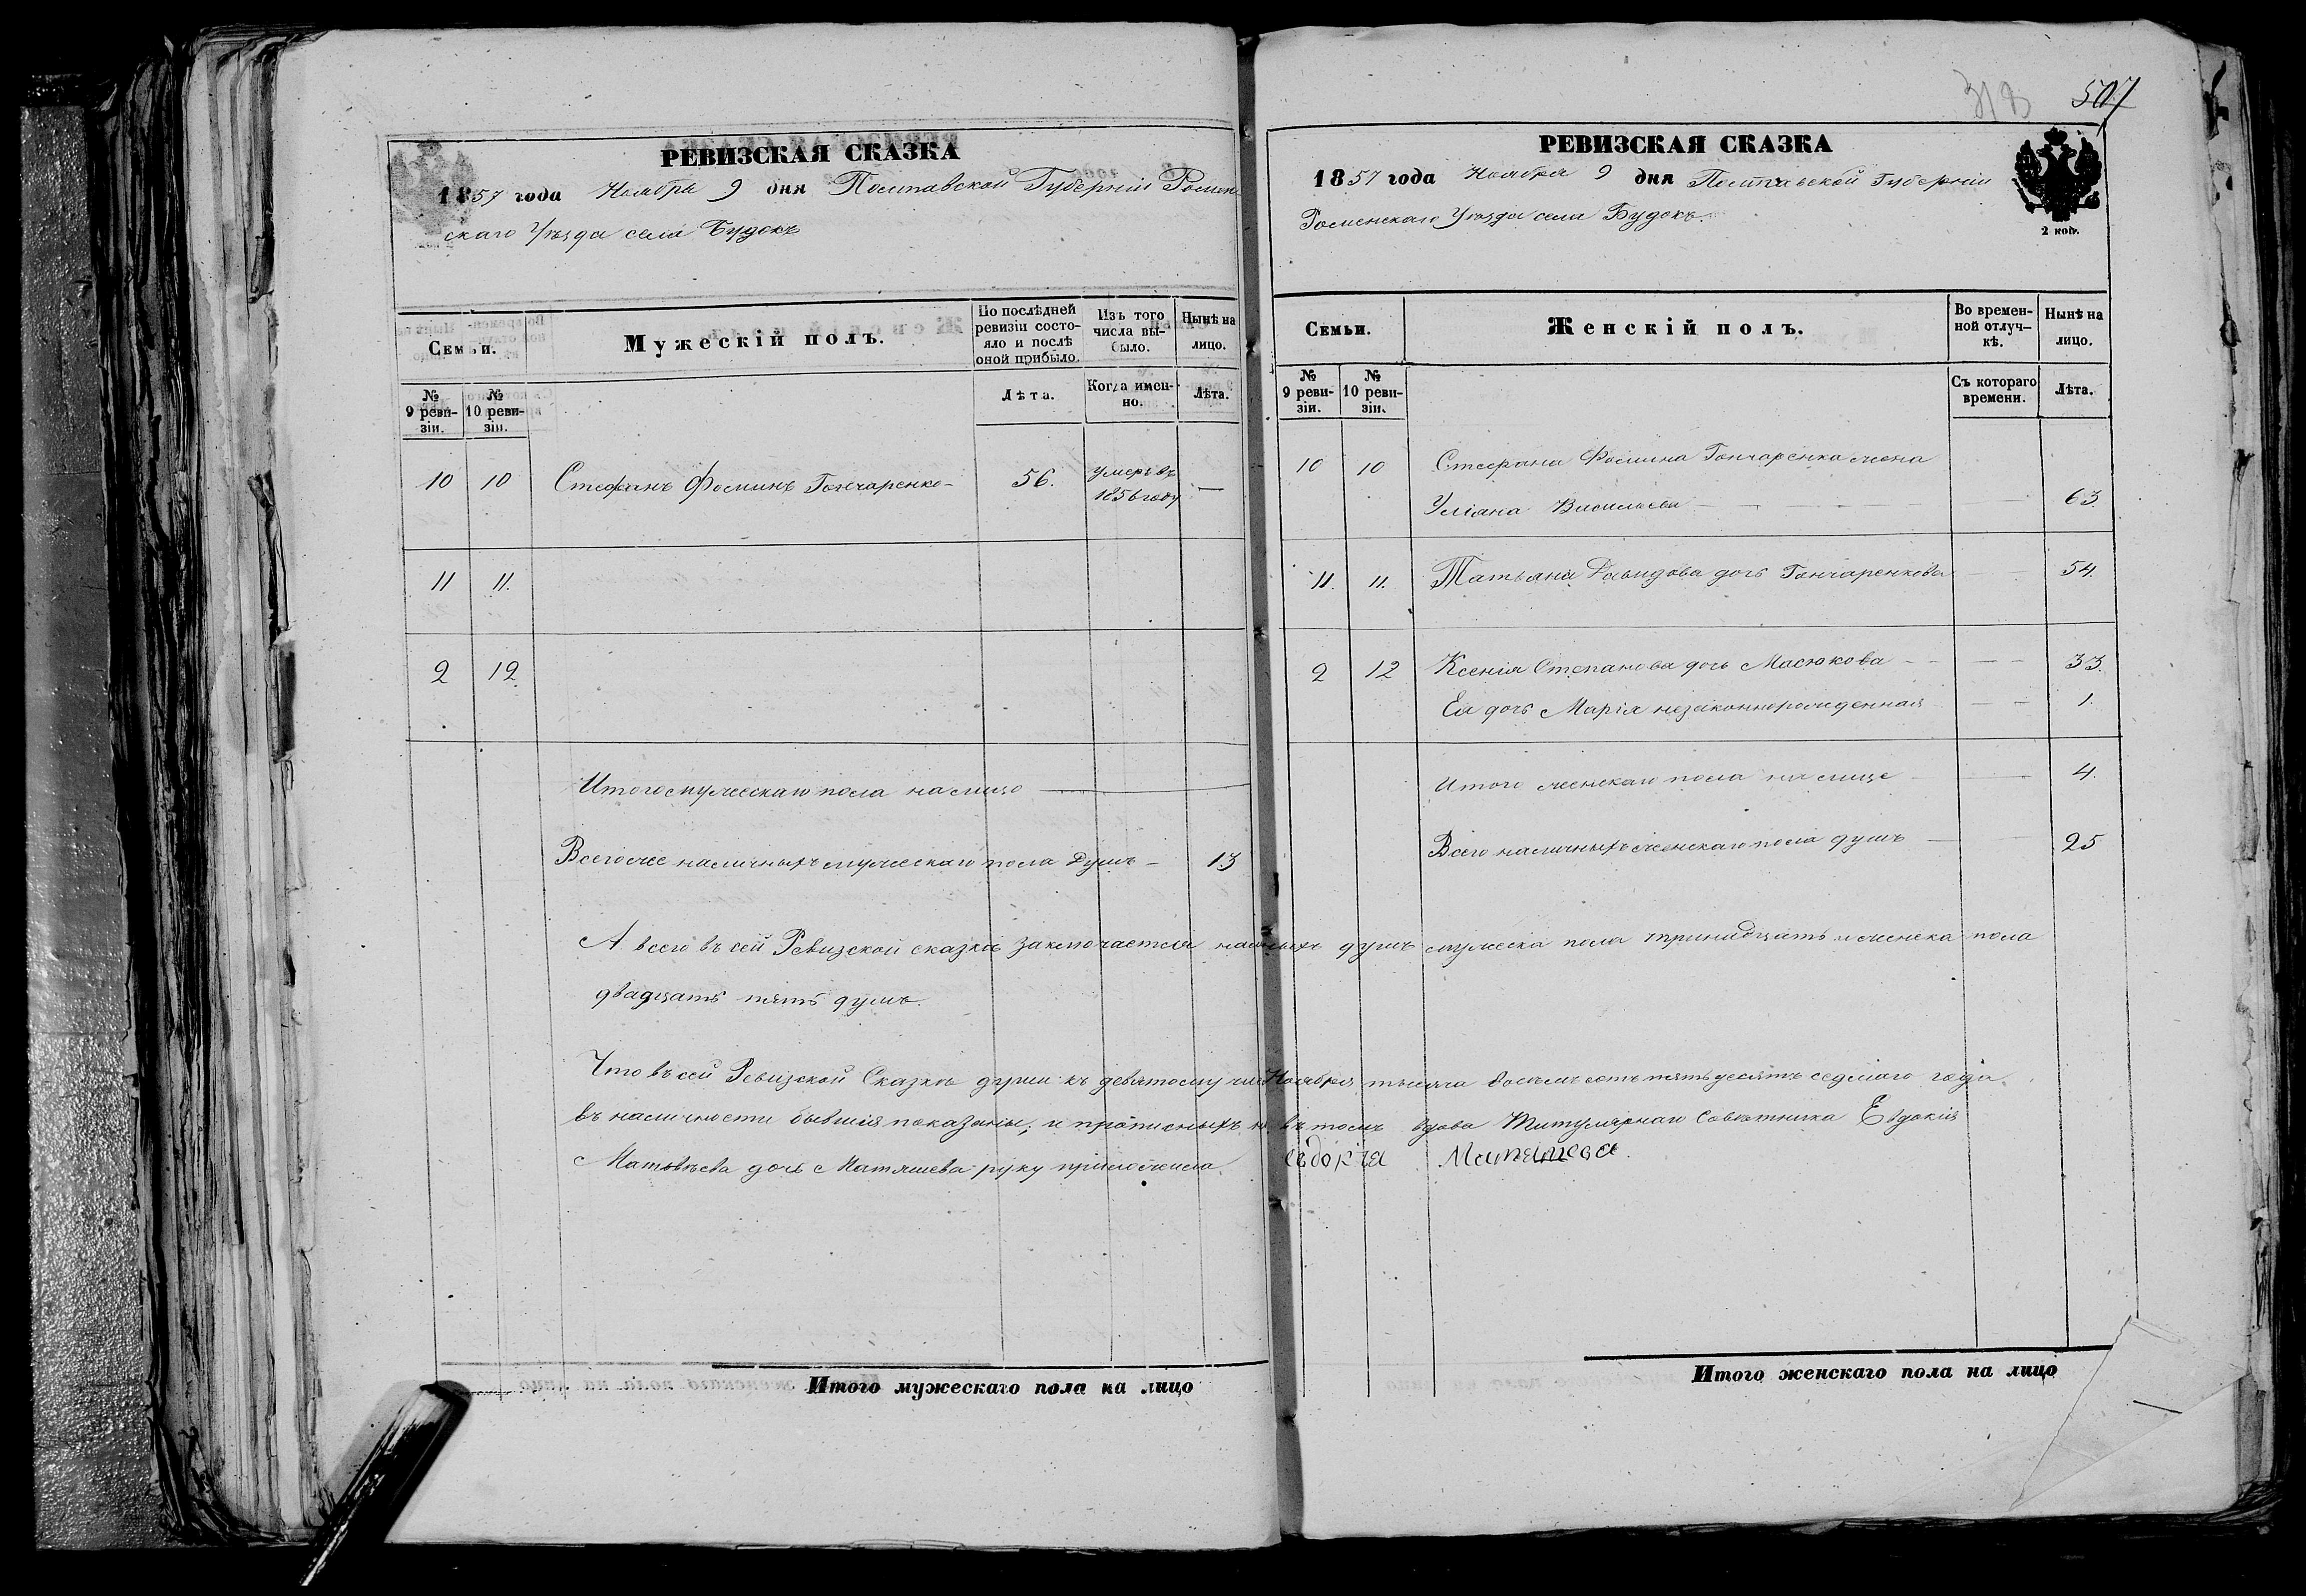 РЕВИЗСКАЯ СКАЗКА
1857 года Ноября 9 дня Полтавской Губерніи Ромен
скаго Уѣзда села Будокъ
Семьи.
Мужескій полъ.
По послѣдней ревизіи состояло и послѣ оной прибыло.
Изъ того числа выбыло.
Нынѣ на лицо.
№ 9 ревизіи.
№ 10 ревизіи.
Лѣта.
Когда именно.
Лѣта.
10 10 Стефанъ Фоминъ Гончаренко 56. умеръ въ
1856 году —
11 11.
2 12
Итого мужескаго пола на лицо —
Всего же наличныхъ мужескаго пола душъ — 13
318 507
РЕВИЗСКАЯ СКАЗКА
1857 года Ноября 9 дня Полтавской Губерніи
Роменскаго Уѣзда села Будокъ.
2 коп.
Семьи.
Женскій полъ.
Во временной отлучкѣ.
Нынѣ на лицо.
№ 9 ревизіи.
№ 10 ревизіи.
Съ котораго времени.
Лѣта.
10 10 Стефана Фомина Гончаренка жена
Уліана Васильева — — 63.
11. 11. Татьяна Давидова дочь Гончаренкова — 54.
2 12 Ксенія Степанова дочь Масюкова — — 33.
Ея дочь Марія незаконнорожденная — — 1.
Итого женскаго пола на лице — 4.
Всего наличныхъ женскаго пола душъ — 25
А всего въ сей Ревизской сказкѣ заключается наличныхъ душъ мужеска пола тринадцать и женска пола
двадцать пять душъ.
Что въ сей Ревизской Сказкѣ души къ девятому Ноября тысяча восемь сотъ пятьдесятъ седмаго года
въ наличности бывшія показаны, и прописныхъ въ томъ вдова Титулярнаго Совѣтника Евдокія
Матвѣева дочь Матяшева руку приложила. Евдокія Матяшева.
Итого мужескаго пола на лицо
Итого женскаго пола на лицо